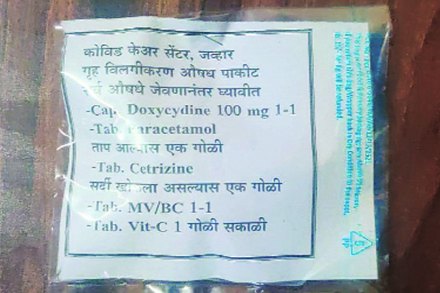 कोविड केअर सेंटर, जव्हार
गृह विलगीकरण औषध पाकीट
सर्व औषधे जेवणानंतर घ्यावीत
-Cap. Doxycydine 100 mg 1-1
-Tab. Paracetamol
ताप आल्यास एक गोळी
-Tab. Cetrizine
सर्दी खोकला असल्यास एक गोळी
-Tab. MV/BC 1-1
-Tab. Vit-C 1 गोळी सकाळी
5
PP